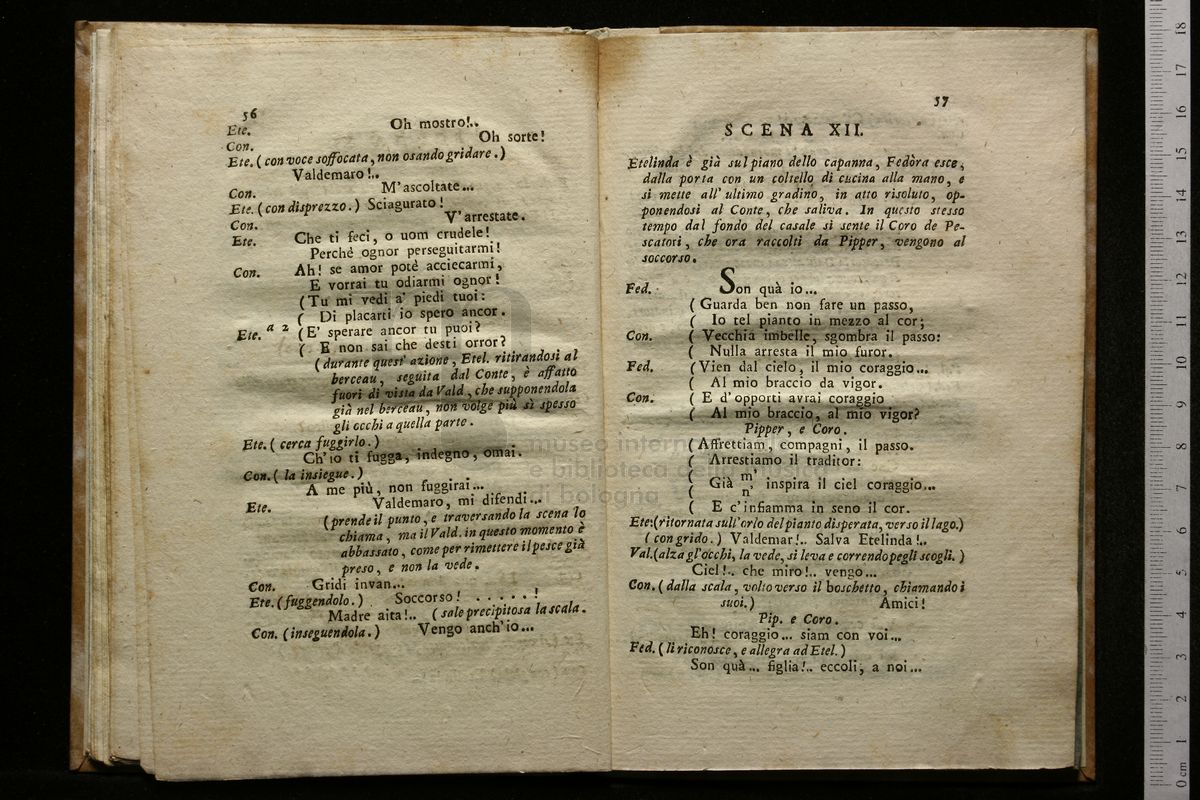 56
Ete. Oh mostro!..
Con. Oh sorte!
Ete. (con voce soffocata, non osando gridare.)
Valdemaro!..
Con. M'ascoltate...
Ete. (con disprezzo.) Sciagurato!
Con. V'arrestate.
Ete. Che ti feci, o uom crudele!
Perchè ognor perseguitarmi!
Con. Ah! se amor potè acciecarmi,
E vorrai tu odiarmi ognor!
(Tu mi vedi a' piedi tuoi:
( Di placarti io spero ancor.
Ete. a 2 (E' sperare ancor tu puoi?
( E non sai che desti orror?
(durante quest' azione, Etel. ritirandosi al
berceau, seguita dal Conte, è affatto
fuori di vista da Vald, che supponendola
già nel berceau, non volge più sì spesso
gli occhi a quella parte.
Ete. (cerca fuggirlo.)
Ch'io ti fugga, indegno, omai.
Con. (la insiegue.)
A me più, non fuggirai...
Ete. Valdemaro, mi difendi...
(prende il punto, e traversando la scena lo
chiama, ma il Vald. in questo momento è
abbassato, come per rimettere il pesce già
preso, e non la vede.
Con. Gridi invan...
Ete. (fuggendolo.) Soccorso! . . . . . !
Madre aita!.. (sale precipitosa la scala.
Con. (inseguendola.) Vengo anch'io...
57
SCENA XII.
Etelinda è già sul piano dello capanna, Fedòra esce,
dalla porta con un coltello di cucina alla mano, e
si mette all' ultimo gradino, in atto risoluto, op-
ponendosi al Conte, che saliva. In questo stesso
tempo dal fondo del casale si sente il Coro de Pe-
scatori, che ora raccolti da Pipper, vengono al
soccorso.
Fed. Son quà io...
( Guarda ben non fare un passo,
( Io tel pianto in mezzo al cor;
Con. ( Vecchia imbelle, sgombra il passo:
( Nulla arresta il mio furor.
Fed. (Vien dal cielo, il mio coraggio...
( Al mio braccio da vigor.
Con. ( E d'opporti avrai coraggio
( Al mio braccio, al mio vigor?
Pipper, e Coro.
(Affrettiam, compagni, il passo.
( Arrestiamo il traditor:
( Già m' inspira il ciel coraggio...
( n'
( E c'infiamma in seno il cor.
Ete:(ritornata sull'orlo del pianto disperata, verso il lago.)
(con grido.) Valdemar!.. Salva Etelinda!..
Val.(alza gl'occhi, la vede, si leva e correndo pegli scogli.)
Ciel!.. che miro!.. vengo...
Con. (dalla scala, volto verso il boschetto, chiamando i
suoi.) Amici!
Pip. e Coro.
Eh! coraggio... siam con voi...
Fed. (li riconosce, e allegra ad Etel.)
Son quà... figlia!.. eccoli, a noi...
museo intern
e biblioteca della musica
di bologna
0 cm 1 2 3 4 5 6 7 8 9 10 11 12 13 14 15 16 17 18